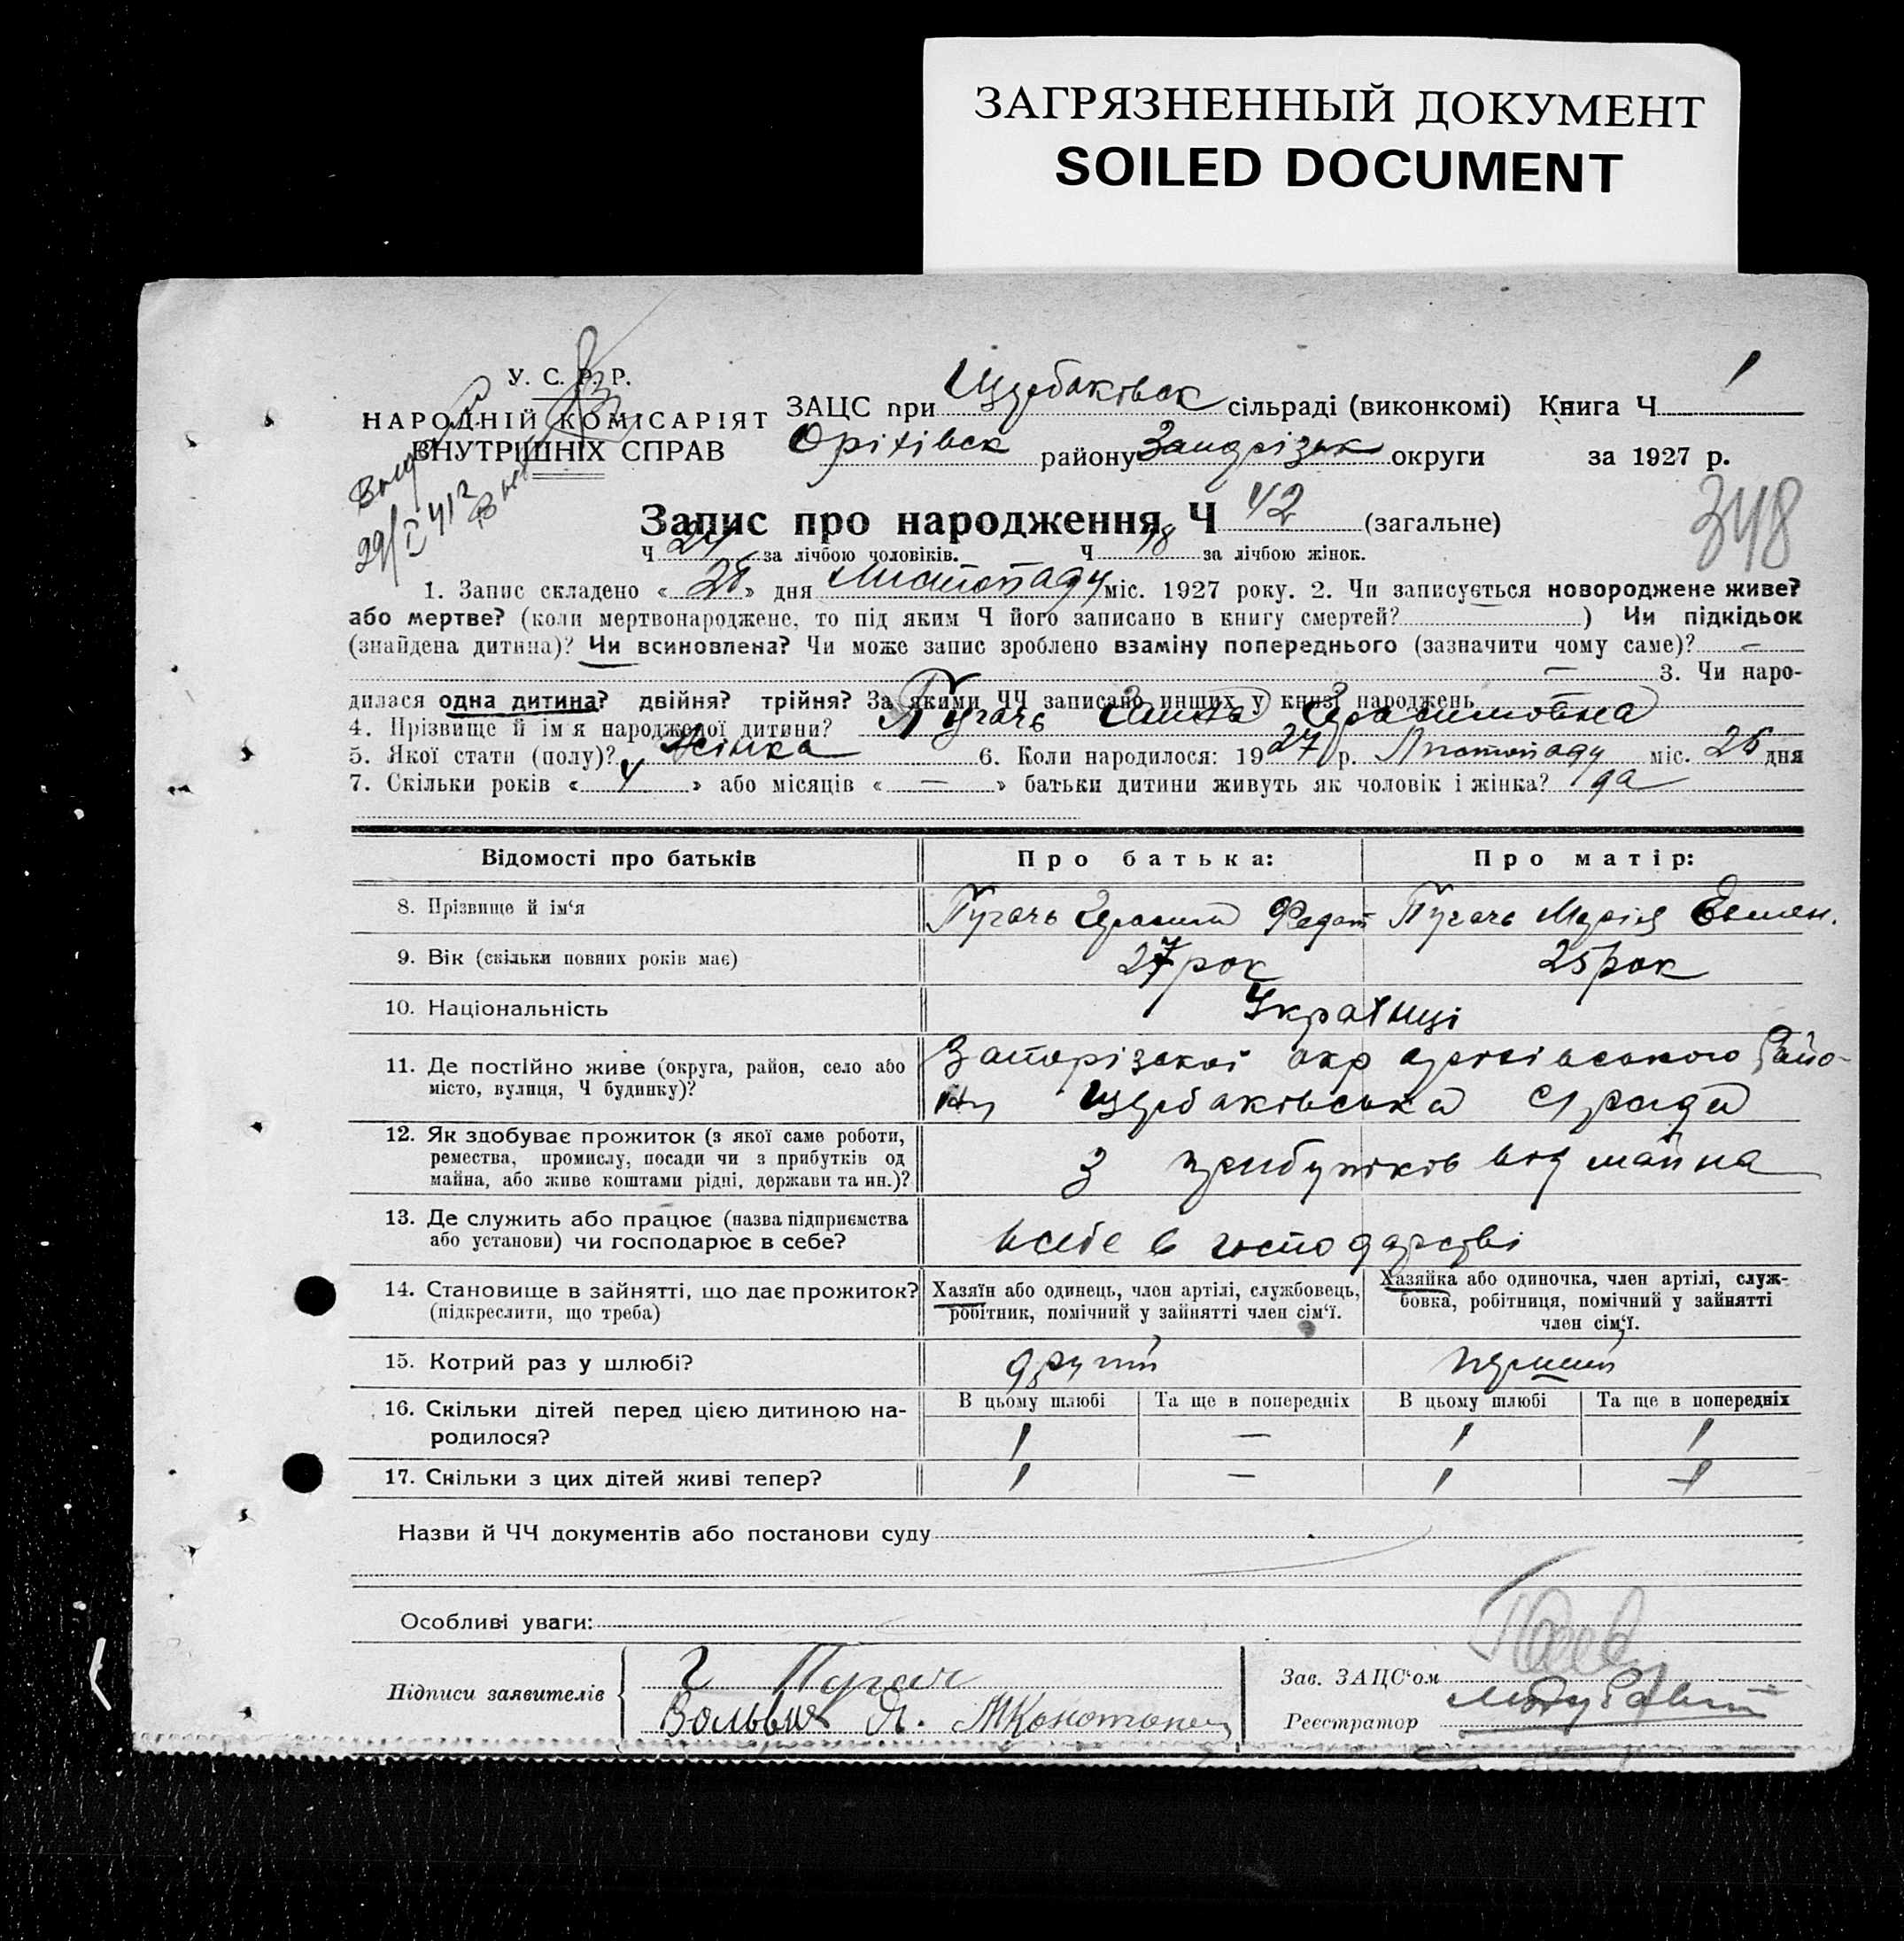 ЗАГРЯЗНЕННЫЙ ДОКУМЕНТ
SOILED DOCUMENT
У. С. Р. Р.
НАРОДНІЙ КОМІСАРІЯТ
ВНУТРІШНІХ СПРАВ
ЗАЦС при Щербаківск сільраді (виконкомі) Книга Ч 1
Оріхівск району округи за 1927 р.
348
Запис про народження Ч 42 (загальне)
Ч 24 за лічбою чоловіків. Ч 18 за лічбою жінок.
1. Запис складено « 28 » дня Листопаду міс. 1927 року. 2. Чи записується новороджене живе?
або мертве? (коли мертвонароджене, то під яким Ч його записано в книгу смертей? — ) Чи підкідьок
(знайдена дитина)? Чи всиновлена? Чи може запис зроблено взаміну попереднього (зазначити чому саме)? —
— 3. Чи наро-
дилася одна дитина? двійня? трійня? За якими ЧЧ записано инших у книзі народжень
4. Прізвище й ім'я народженої дитини? Пугачь
5. Якої стати (полу)? Жінка 6. Коли народилося: 1927 р. Листопаду міс. 26 дня
7. Скільки років « 4 » або місяців « — » батьки дитини живуть як чоловік і жінка? да
Відомості про батьків Про батька: Про матір:
8. Прізвище й ім'я Пугачь Герасим Федот Пугачь Марія
9. Вік (скільки повних років має) 27 рок 25 рок
10. Національність Українці
11. Де постійно живе (округа, район, село або
місто, вулиця, Ч будинку)?
Запорізької окр оріхівського райо-
ну Щербаківська с/рада
12. Як здобуває прожиток (з якої саме роботи,
ремества, промислу, посади чи з прибутків од
майна, або живе коштами рідні, держави та ин.)?
З прибутків від майна
13. Де служить або працює (назва підприємства
або установи) чи господарює в себе?
в себе в господарстві
14. Становище в зайнятті, що дає прожиток?
(підкреслити, що треба)
Хазяїн або одинець, член артілі, службовець,
робітник, помічний у зайнятті член сім'ї.
Хазяйка або одиночка, член артілі, служ-
бовка, робітниця, помічний у зайнятті
член сім'ї.
15. Котрий раз у шлюбі? другий перший
16. Скільки дітей перед цією дитиною на-
родилося?
В цьому шлюбі Та ще в попередніх В цьому шлюбі Та ще в попередніх
1 — 1 1
17. Скільки з цих дітей живі тепер? 1 — 1 1
Назви й ЧЧ документів або постанови суду
Особливі уваги:
Підписи заявителів
Г Пугач
Зав. ЗАЦС'ом
Реєстратор